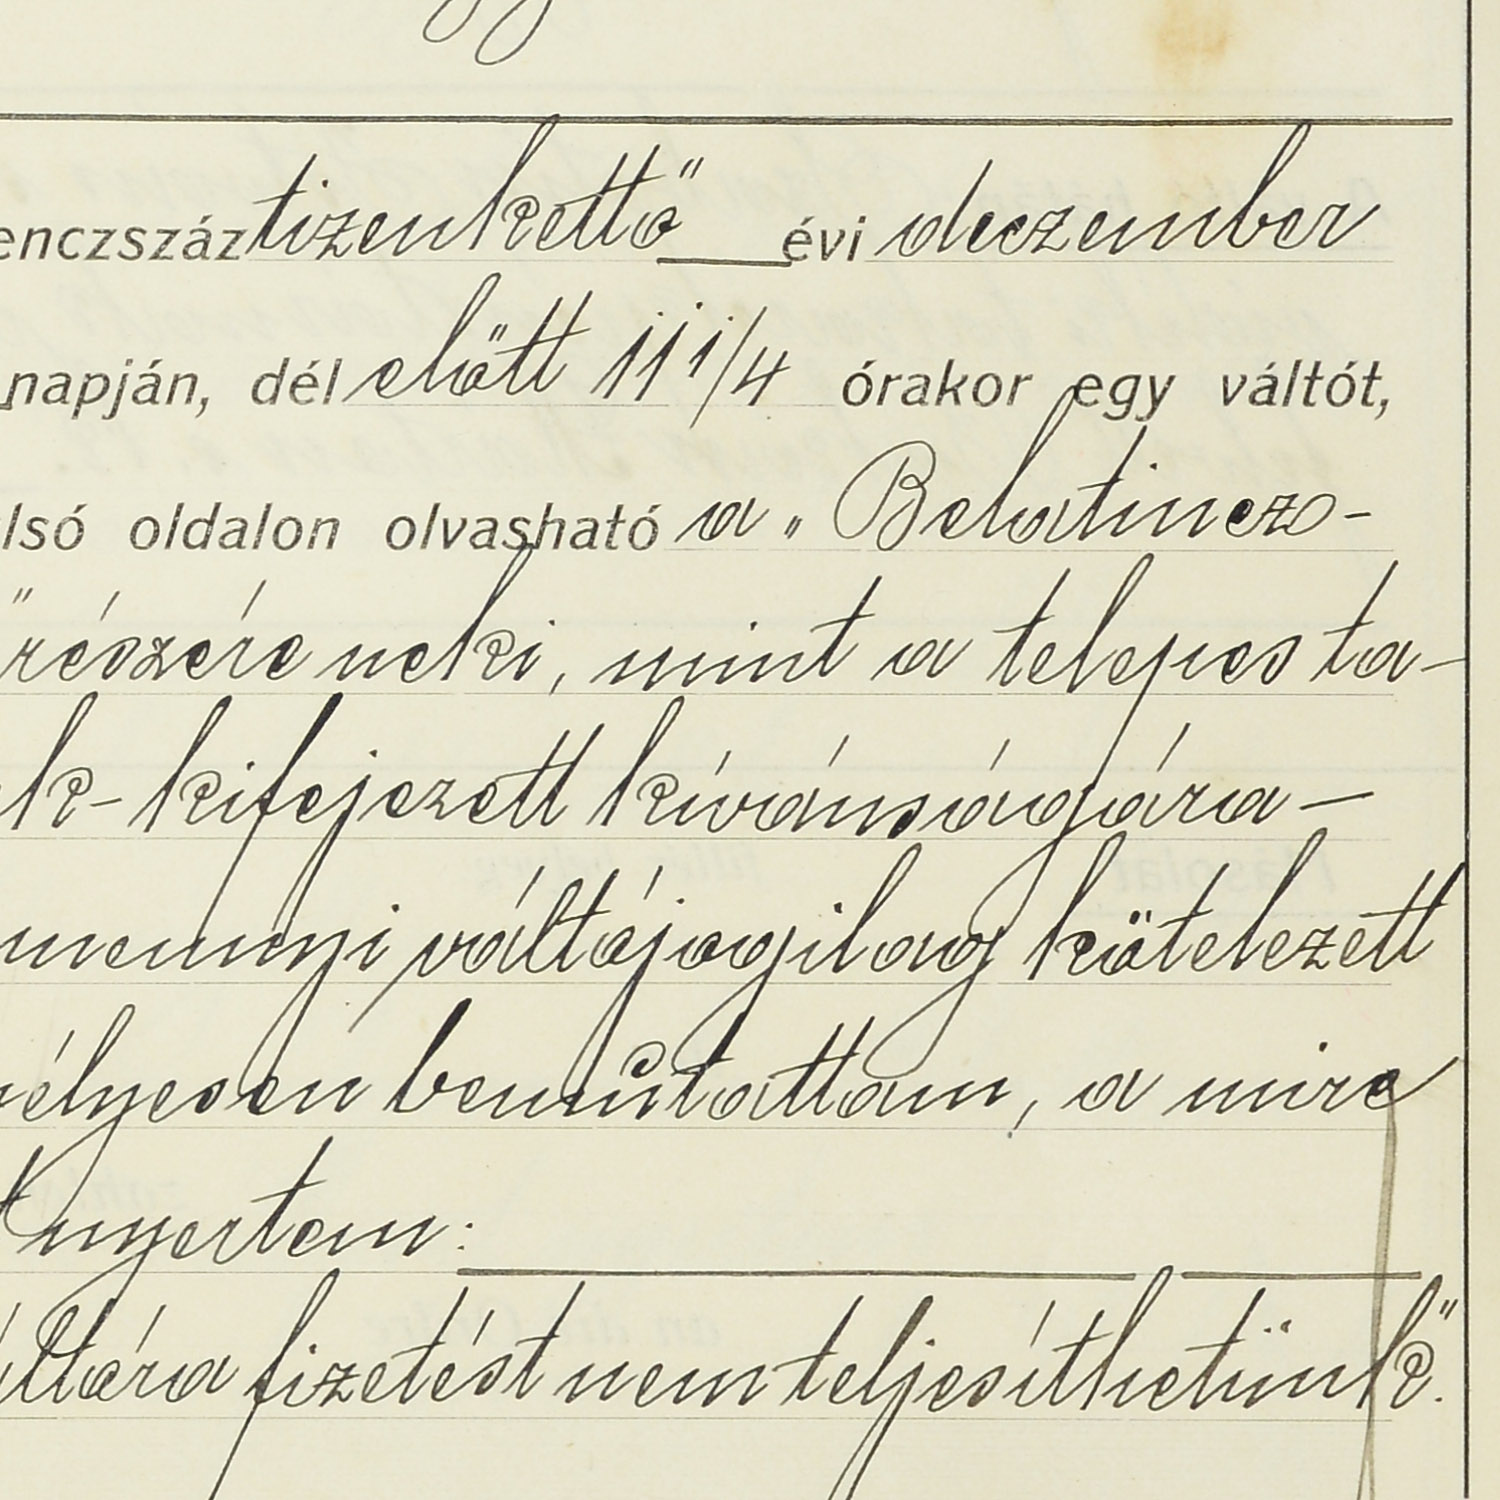 enczszáz tizenkettő évi deczember
napján, dél előtt 11 1/4 órakor egy váltót,
lsó oldalon olvasható a „Belatincz-
" részére neki, mint a telepes ta-
k - kifejezett kívánságára -
mennyi váltójogilag kötelezett
élyesen bemutattam, a mire
nyertem:
fizetést nem teljesíthetünk".